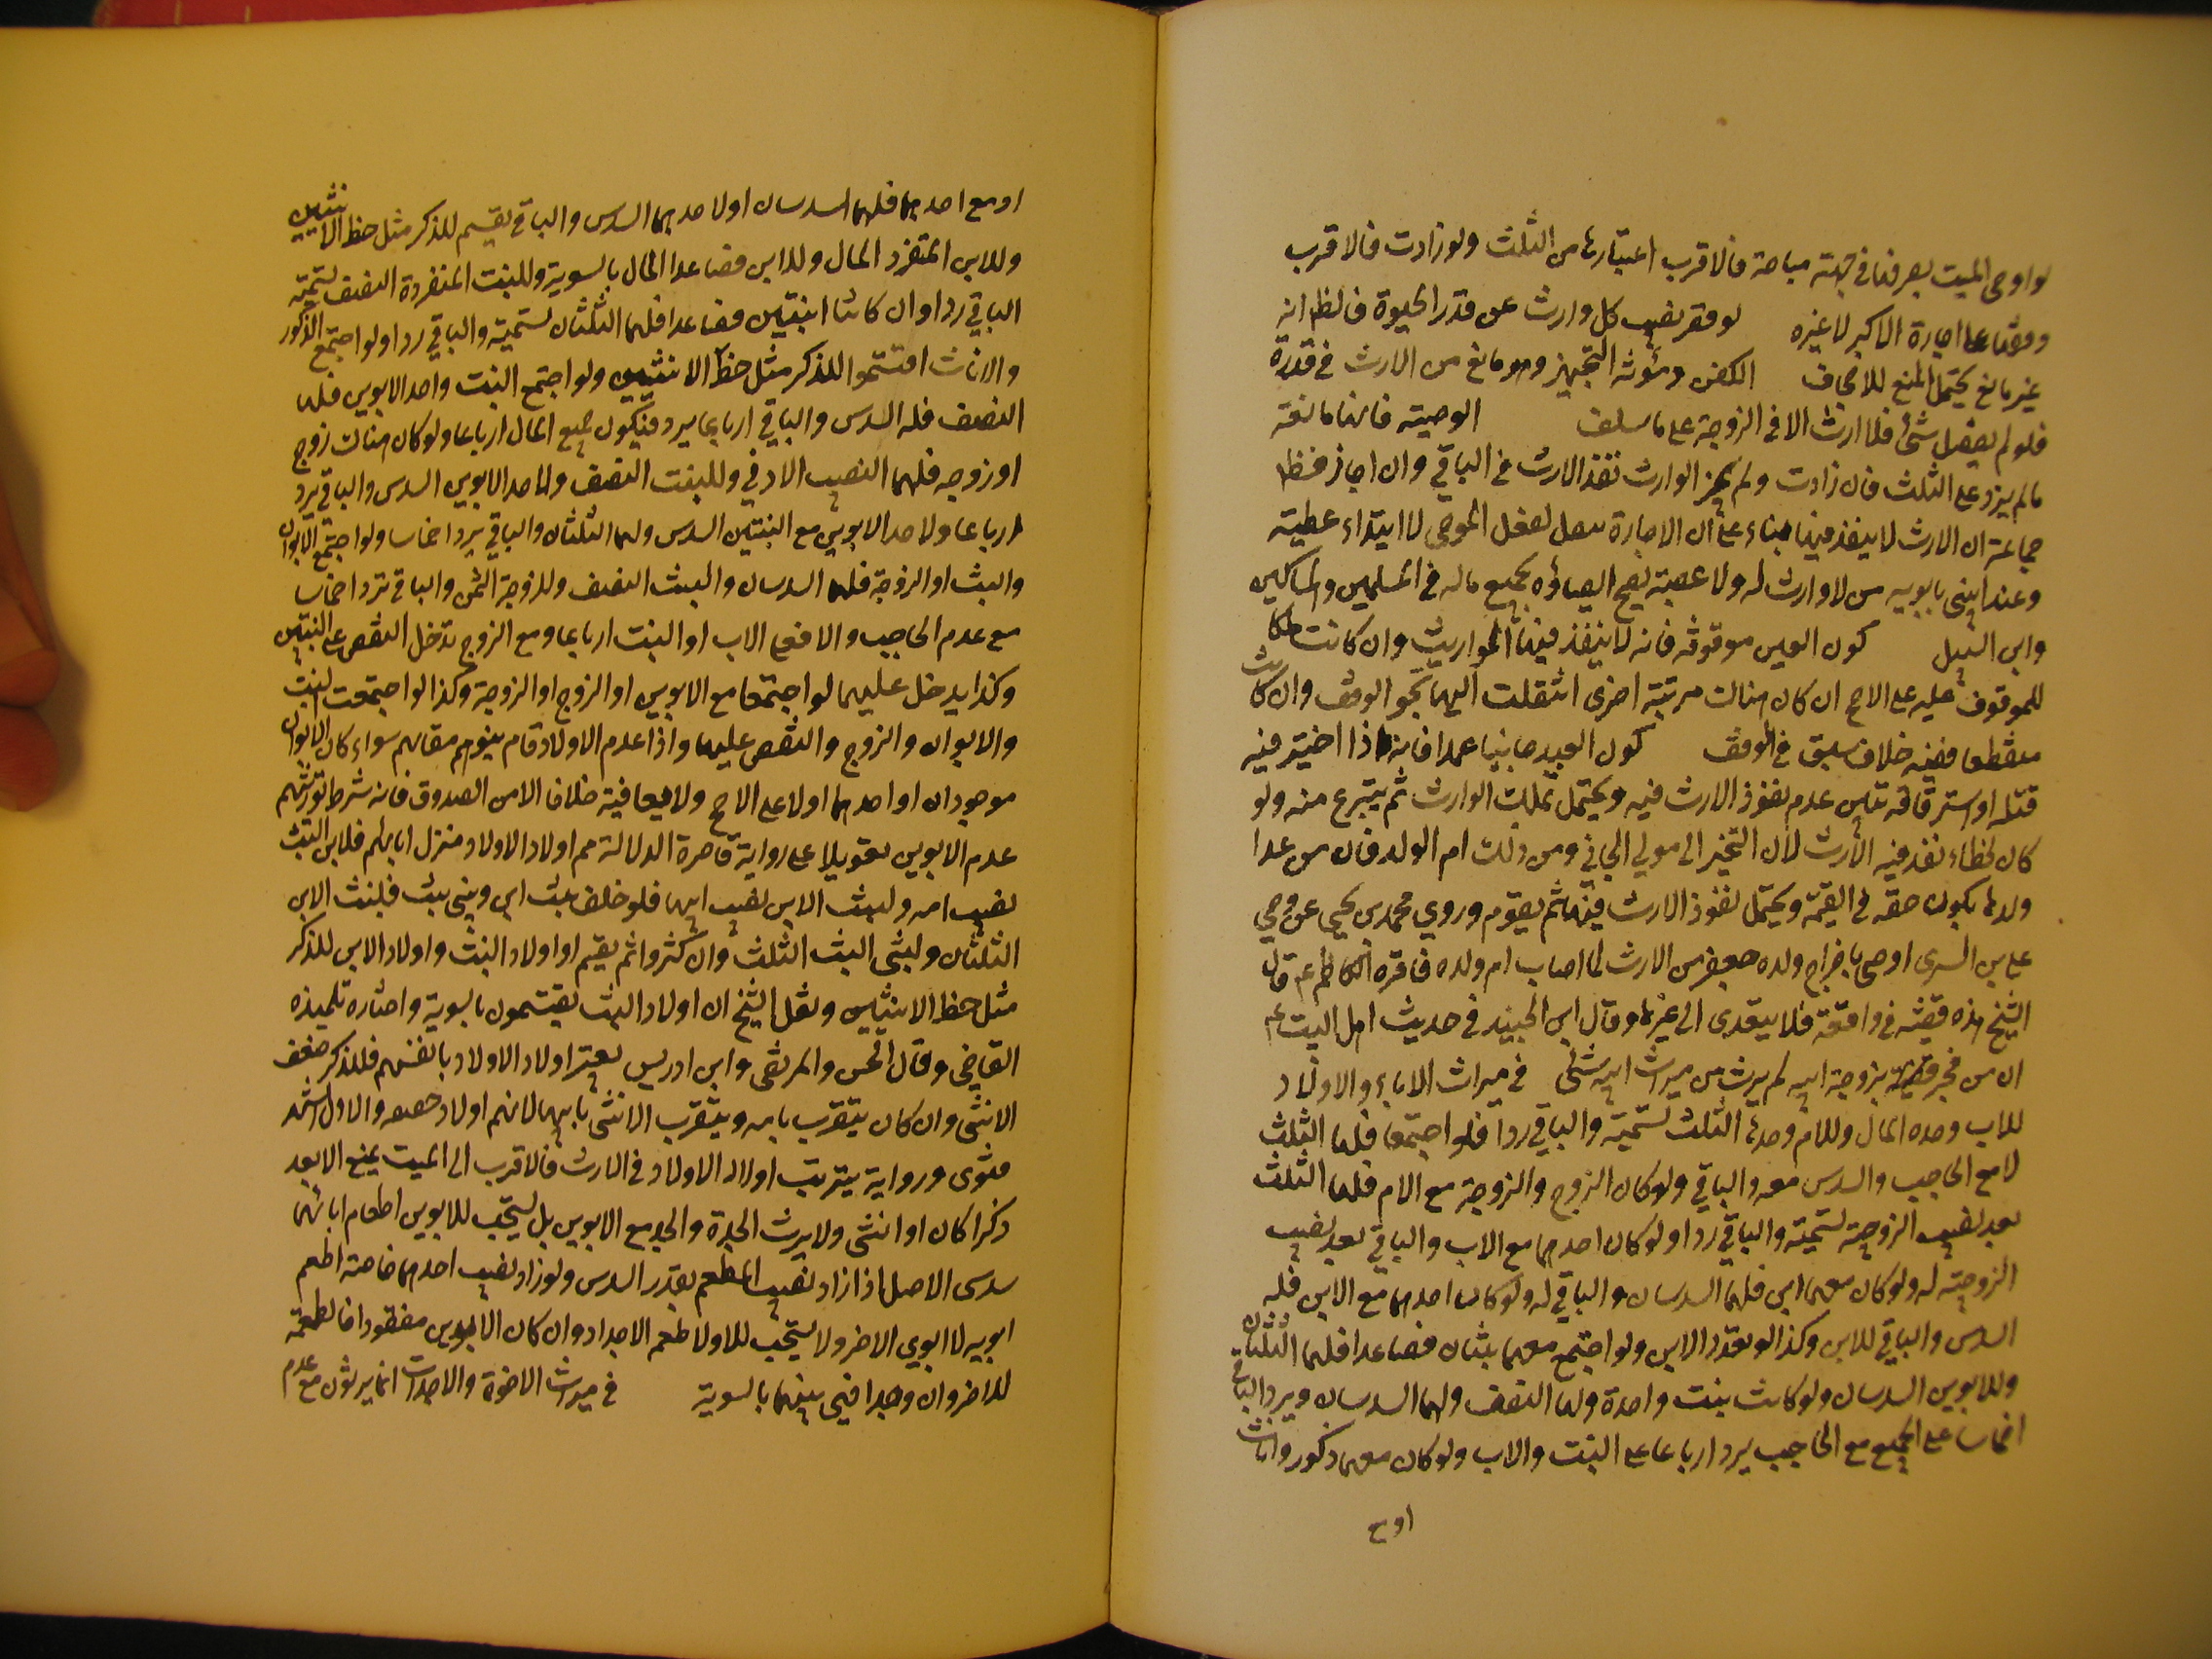 لو اوصى الميت بصرفها في جهة مباحة فالاقرب اعتبارها من الثلث ولو زادت فالاقرب
وقوفها على اجازة الاكبر لا غيره لو قصر نصيب كل وارث عن قدر الحبوة فالظاهر انه
غير مانع يحتمل المنع للاجحاف الكفن ومؤنة التجهيز وهو مانع من الارث في قدره
فلو لم يفضل شئ فلا ارث الا في الزوجة على ما سلف الوصية فانها مانعة
ما لم يزد على الثلث فان زادت ولم يجز الوارث نفذ الارث في الباقي وان اجاز فظاهر
جماعة ان الارث لا ينفذ فيها بناء على ان الاجازة لفعل الموصي لا ابتداء عطية
وعند ابني بابويه من لا وارث له ولا عصبة يصح ايصاؤه بجميع ماله في المسلمين والمساكين
وابن السبيل كون العين موقوفة فانه لا ينفذ فيها المواريث وان كانت ملكا
للموقوف عليه على الاصح ان كان هناك مرتبة اخرى انتقلت اليها بحق الوقف وان كان
منقطعا ففيه خلاف سبق في الوقف كون العبد جانيا عمدا فانه اذا اختير فيه
قتله او استرقاقه تبين عدم نفوذ الارث فيه ويحتمل تملك الوارث ثم ينتزع منه ولو
كان خطاء نفذ فيه الارث لان التخير الى مولى الجاني ومن ذلك ام الولد فان من عدا
ولدها يكون حقه في القيمة ويحتمل نفوذ الارث فيها ثم يقوم وروي محمد بن يحيى عن وصي
علي بن السري اوصى باخراج ولده جعفر من الارث لما اصاب ام ولده فاقره الكاظم ع قال
الشيخ هذه قضية في واقعة فلا يتعدى الى غيرها وقال ابن الجنيد في حديث اهل البيت ع
ان من فجر بزوجة ابيه لم يرث من ميراث ابيه شئ في ميراث الاباء والاولاد
للاب وحده المال وللام وحدها الثلث تسمية والباقي ردا فلو اجتمعا فلها الثلث
لا مع الحاجب والسدس معه والباقي ولو كان الزوج والزوجة مع الام فلها الثلث
بعد نصيب الزوجية تسمية والباقي ردا ولو كان احدهما مع الاب والباقي بعد نصيب
الزوجية له ولو كان معهما ابن فلهما السدسان والباقي له ولو كان احدهما مع الابن فله
السدس والباقي للابن وكذا لو تعدد الابن ولو اجتمع معهما بنتان فصاعدا فلهما الثلثان
وللابوين السدسان ولو كانت بنت واحدة ولها النصف ولهما السدسان ويرد الباقي
اخماسا على الجميع مع الحاجب يرد ارباعا على البنت والاب ولو كان معهما ذكور واناث
او مع
او مع احدهما فلهما السدسان او لاحدهما السدس والباقي يقسم للذكر مثل حظ الانثيين
وللابن المنفرد المال وللابنين فصاعدا المال بالسوية وللبنت المنفردة النصف تسمية
الباقي ردا وان كانتا ابنتين فصاعدا فلهما الثلثان تسمية والباقي ردا ولو اجتمع الذكور
والاناث اقتسموا للذكر مثل حظ الانثيين ولو اجتمع البنت واحد الابوين فلها
النصف فله السدس والباقي ارباعا يرد فيكون جميع المال ارباعا ولو كان هناك زوج
او زوجه فلهما النصيب الادنى وللبنت النصف ولاحد الابوين السدس والباقي يرد
ارباعا ولاحد الابوين مع البنتين السدس ولهما الثلثان والباقي يرد اخماسا ولو اجتمع الابوان
والبنت او الزوجة فلهما السدسان والبنت النصف وللزوجة الثمن والباقي ترد اخماسا
مع عدم الحاجب والا فعلى الاب او البنت ارباعا ومع الزوج تدخل النقص على البنتين
وكذا يدخل عليهما لو اجتمعا مع الابوين او الزوج او الزوجة وكذا لو اجتمعت البنت
والابوان والزوج والنقص عليها واذا عدم الاولاد قام بنوهم مقامهم سواء كان الابوان
موجودان او احدهما او لا على الاصح ولا خلافا الامن الصدوق فانه شرط توريثهم
عدم الابوين تعويلا على رواية قاصرة الدلالة اولاد الاولاد منزل ابائهم فلابن البنت
نصيب امه ولبنت الابن نصيب ابيها فلو خلف بنت ابن وبني بنت فلبنت الابن
الثلثان ولبني البنت الثلث وان كثروا ثم يقسم اولاد البنت واولاد الابن للذكر
مثل حظ الانثيين ونقل الشيخ ان اولاد البنت يقتسمون بالسوية واختاره تلميذه
القاضي وقال الحسن والمرتضى وابن ادريس يعتبر اولاد الاولاد بانفسهم فللذكر ضعف
الانثى وان كان يتقرب بامه ويتقرب الانثى بابيها لانهم اولاد حقيقه والاول اشهر
فتوى ورواية يترتب اولاد الاولاد في الارث فالاقرب الى الميت يمنع الابعد
ذكرا كان او انثى ولا يرث الجدة والجد مع الابوين بل يستحب للابوين اطعام ابائهما
سدس الاصل اذا زاد نصيب المطعم بقدر السدس ولو زاد نصيب احدهما خاصة اطعم
ابويه لا ابوي الاخر ولا يستحب للاولاد طعم الاجداد وان كان الابوين مفقودا فالطعمة
للاخر وان وجدا فهي بينهما بالسوية في ميراث الاخوة والاجداد انما يرثون مع عدم